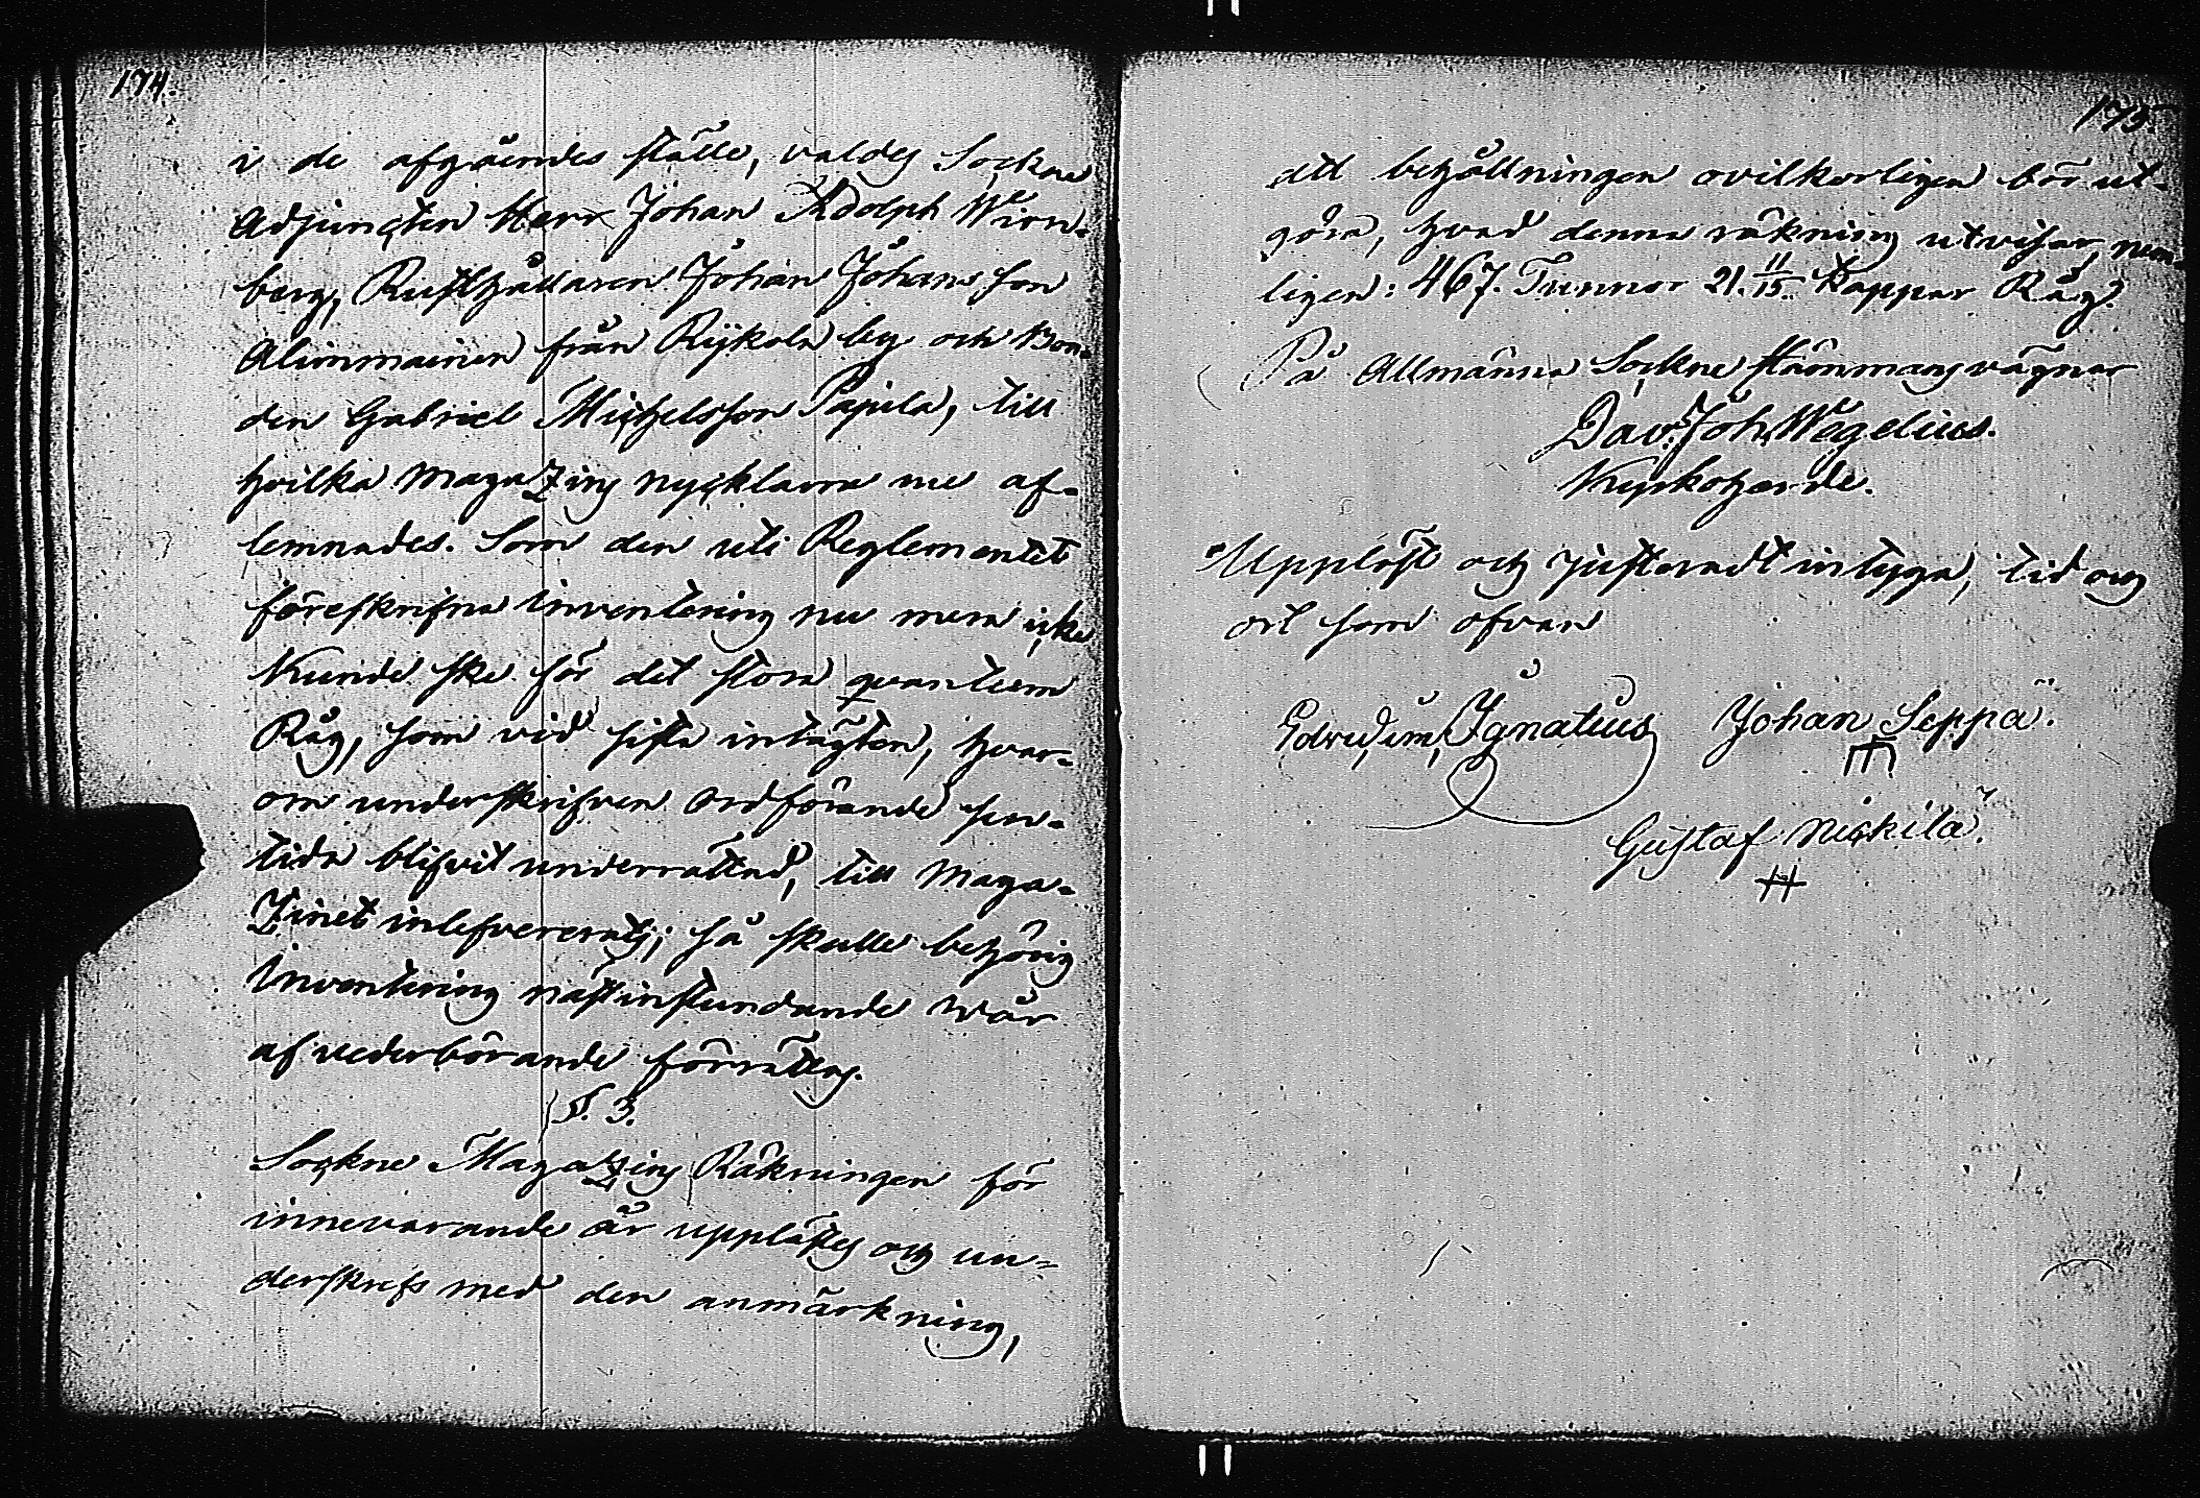 174.
i de afgåendes ställe, valdes Sockne
Adjuncten Herr Johan Adolph Wirn-
berg, Rusthållaren Johan Johansson
Alimmainen från Rykola by och Bon-
den Gabriel Michelsson Papula, till
hvilka Magazins nycklarne nu af-
lemnades. Som den uti Reglementet
föreskrifna inventering nu mera icke
kunde ske för det stora quantum
Råg, som vid sista intägten, hvar-
om underskrifven Ordförande sen-
tida blifvit underrättad, till Maga-
Zinet inlefvererats; så skulle behörig
Inventering nästinstundande Wår
af vederbörande förrättas.
§. 3.
Sockne Magazins Räkningen för
innevarande år upplästes och un-
derskrefs med den anmärkning,
175.
att behållningen ovilkorligen bör ut-
göra, hvad denna räkning utvisar, nem-
ligen: 467. Tunnor 21. 11/15. Kappar Råg.
På Allmänna Sockne stämmans vägnar
Dav: Joh. Wegelius.
Kyrkoherde.
Uppläst och justeradt intyga, tid och
ort som ofvan
Ignatius Johan Seppä.
Gustaf Nickilä.